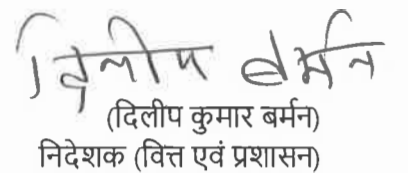 दिलीप बर्मन
(दिलीप कुमार बर्मन)
निदेशक (वित्त एवं प्रशासन)